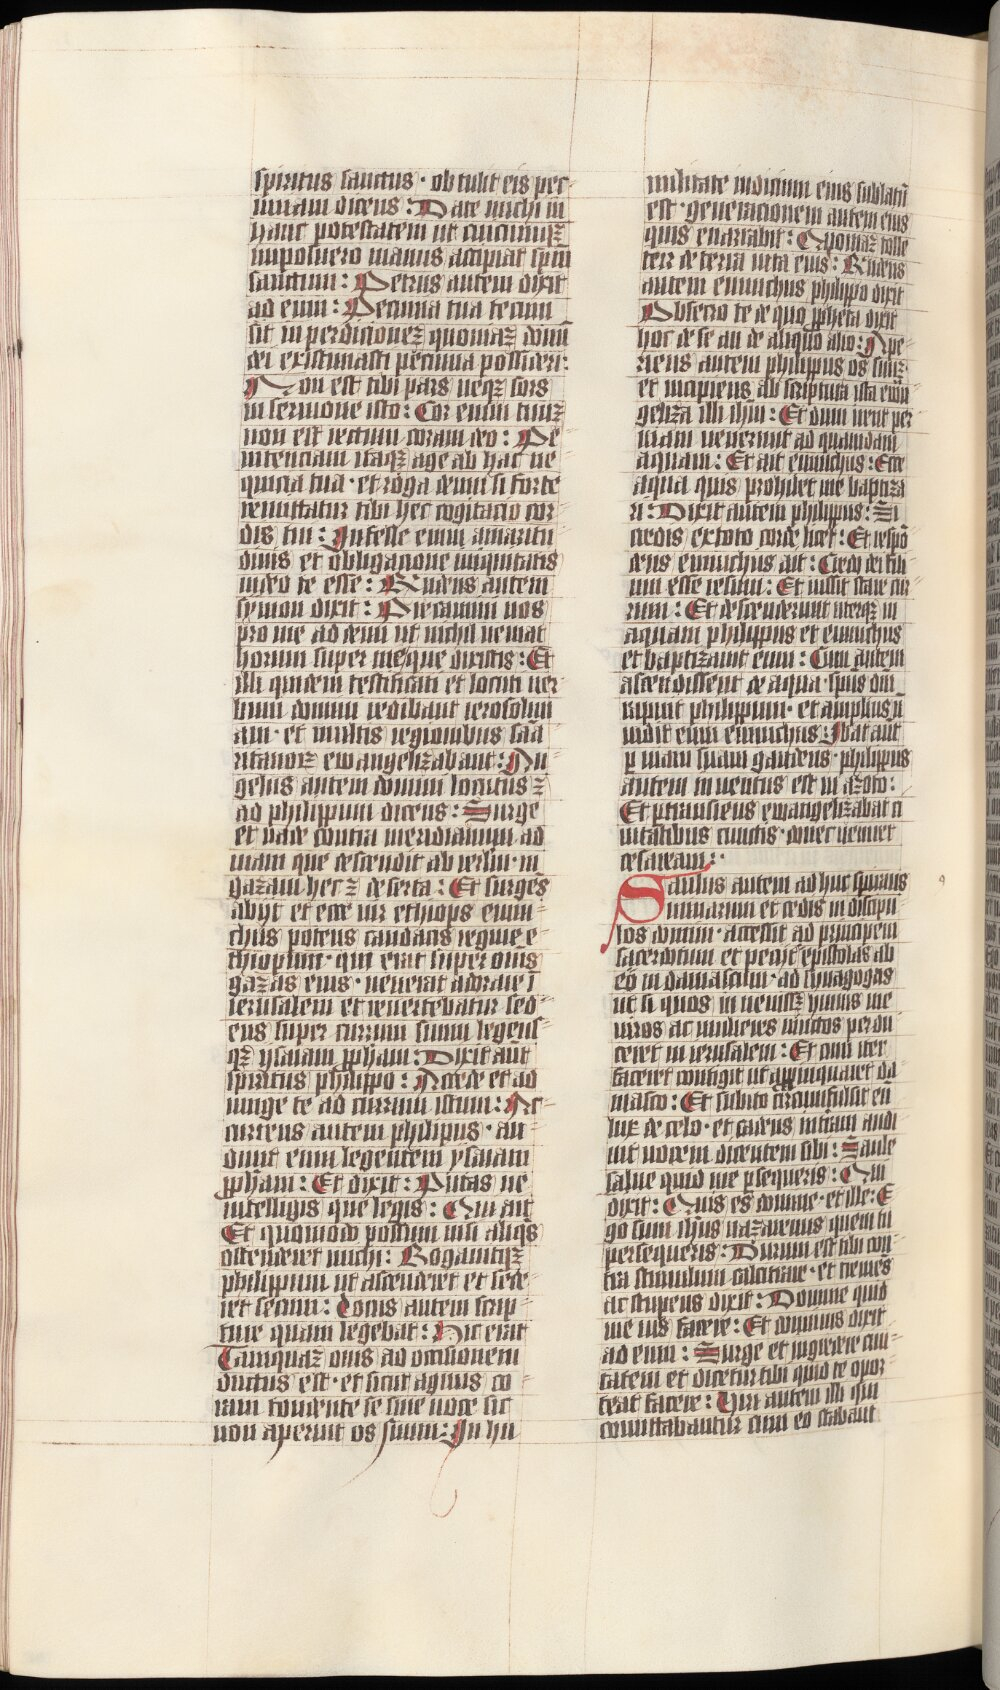 spiritus sanctus · obtulit eis pec
uniam dicens : Date michi in
hanc potestatem ut cuicumqꝫ
imposuero manus accipiat sp̄m
sanctum : Petrus autem dixit
ad eum : Pecunia tua tecum
sit in perdicionez quoniaz donū
dei existimasti pecunia possideri :
Non est tibi pars neqꝫ sors
in sermone isto : Cor enim tuuz
non est rectum coram deo : Pe
nitenciam itaqꝫ age ab hac ne
quicia tua · et roga deum si forte
remittatur tibi hec cogitacio cor
dis tui : In felle enim amaritu
dinis et obligacione iniquitatis
uideo te esse : Rn̄dens autem
symon dixit : Precamini uos
pro me ad deum ut nichil ueniat
horum super me que dixistis : Et
illi quidem testificati et locuti uer
bum domini redibant ierosolim
am · et multis regionibus sama
ritanorꝫ ewangelizabant : An
gelus autem domini locutus ꝫ
ad philippum dicens : Surge
et uade contra meridianum ad
uiam que descendit ab ierlm̄ · in
gazam hec ꝫ deserta : Et surgēs
abijt et ecce uir ethiops eunu
chus potens candacis regine e
thiopum · qui erat super omīs
gazas eius · uenerat adorare ī
ierusalem et reuertebatur sed
ens super currum suum legens
qꝫ ysaiam ꝓph̄am : Dixit aūt
spiritus philippo : Accede et ad
iunge te ad currum istum : Ac
currens autem philipus · au
diuit eum legentem ysaiam
ꝓph̄am : Et dixit : Putas ne
intelligis que legis : Qui ait
Et quomodo possum nisi aliqͥs
ostenderet michi : Rogauitqꝫ
philippum ut ascenderet et sede
ret secum : Locus autem scrip
ture quam legebat : Hic erat
Tamquaz ouis ad occisionem
ductus est · et sicut agnus co
ram tondente se sine uoce sic
non aperuit os suum : In hu
militate iudicium eius sublatū
est · generacionem autem eius
quis enarrabit : Quoniaz tolle
tur de terra uita eius : Rn̄dens
autem eunuchus philippo dixit
Obsecro te de quo ꝓpheta dixit
hoc de se an de aliquo alio : Ape
riens autem philippus os suuꝫ
et incipiens ab scriptura ista ewā
geliza illi ih̄m : Et dum irent per
uiam uenerunt ad quamdam
aquam : Et ait eunuchus : Ecce
aqua quis prohibet me baptiza
ri : Dixit autem philippus : Si
credis ex toto corde licet : Et respō
dens eunuchus ait : Credo dei fili
um esse iesum : Et iussit stare cur
rum : Et descenderunt uterqꝫ in
aquam philippus et eunuchus
et baptizauit eum : Cum autem
ascendissent de aqua · sp̄us dn̄i
rapuit philippum · et amplius n̄
uidit eum eunuchus : Ibat aūt
ꝑ uiam suam gaudens · philippus
autem inuentus est in azoto :
Et ꝑtransiens ewangelizabat ci
uitatibus cunctis · donec ueniret
cesaream :·
Saulus autem adhuc spirans
minarum et cedis in discipu
los domini · accessit ad principem
sacerdotum et peciit epistolas ab
eo in damascum · ad synagogas
ut si quos inuenissꝫ huius uie
uiros ac mulieres uinctos perdu
ceret in ierusalem : Et cum iter
faceret contigit ut appinquaret da
masco : Et subito circumfulsit eū
lux de celo · et cadens in terram audi
uit uocem dicentem sibi : Saule
saule quid me ꝑsequeris : Qui
dixit : Quis es domine · et ille : E
go sum ih̄us nazarenus quem tu
persequeris : Durum est tibi con
tra stimulum calcitrare · et tremēs
ac stupens dixit : Domine quid
me uis facere : Et dominus dixit
ad eum : Surge et ingredere ciui
tatem et dicetur tibi quid te opor
teat facere : Uiri autem illi qui
comitabantur cum eo stabant